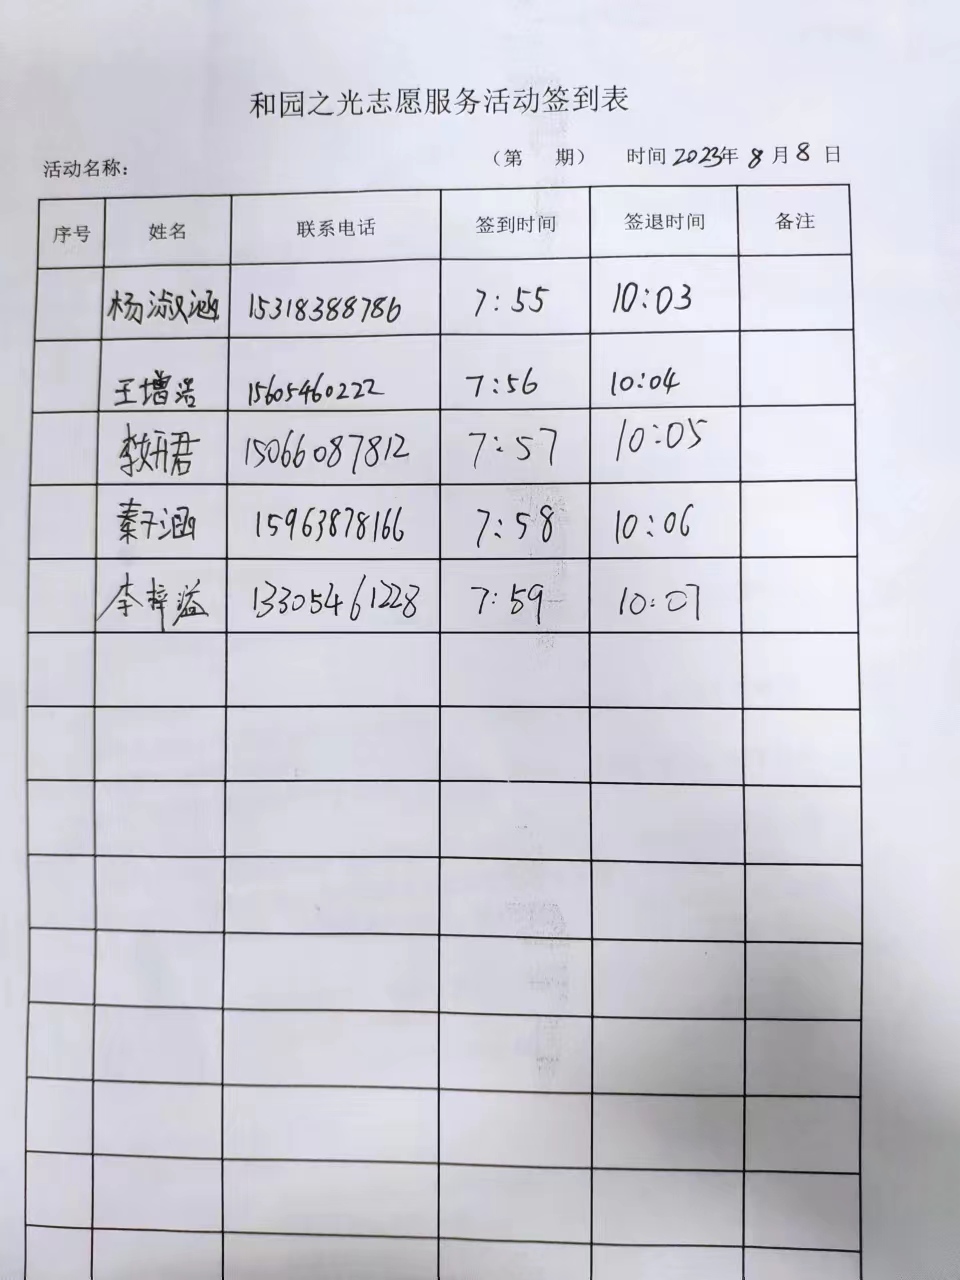 和园之光志愿服务活动签到表
活动名称： （第 期） 时间 2023年 8月8日
序号 姓名 联系电话 签到时间 签退时间 备注
杨淑涵 15318388786 7:55 10:03
王增浩 15605460222 7:56 10:04
李妍君 15066087812 7:57 10:05
秦子涵 15963878166 7:58 10:06
李梓溢 13305461228 7:59 10:07